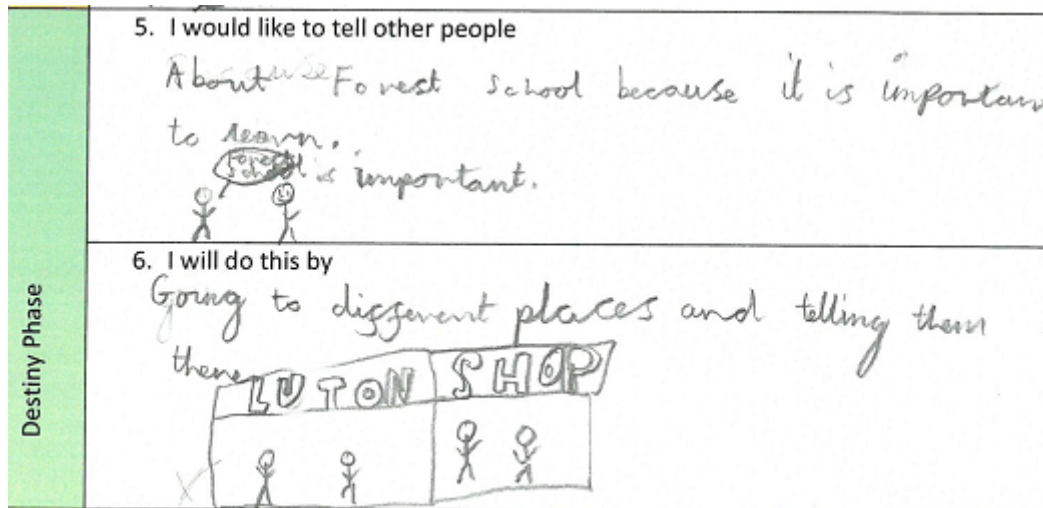 5. I would like to tell other people
About Forest School because it is importan
to learn.
Forest
School is important.
6. I will do this by
Going to different places and telling them
there
LUTON SHOP
Destiny Phase